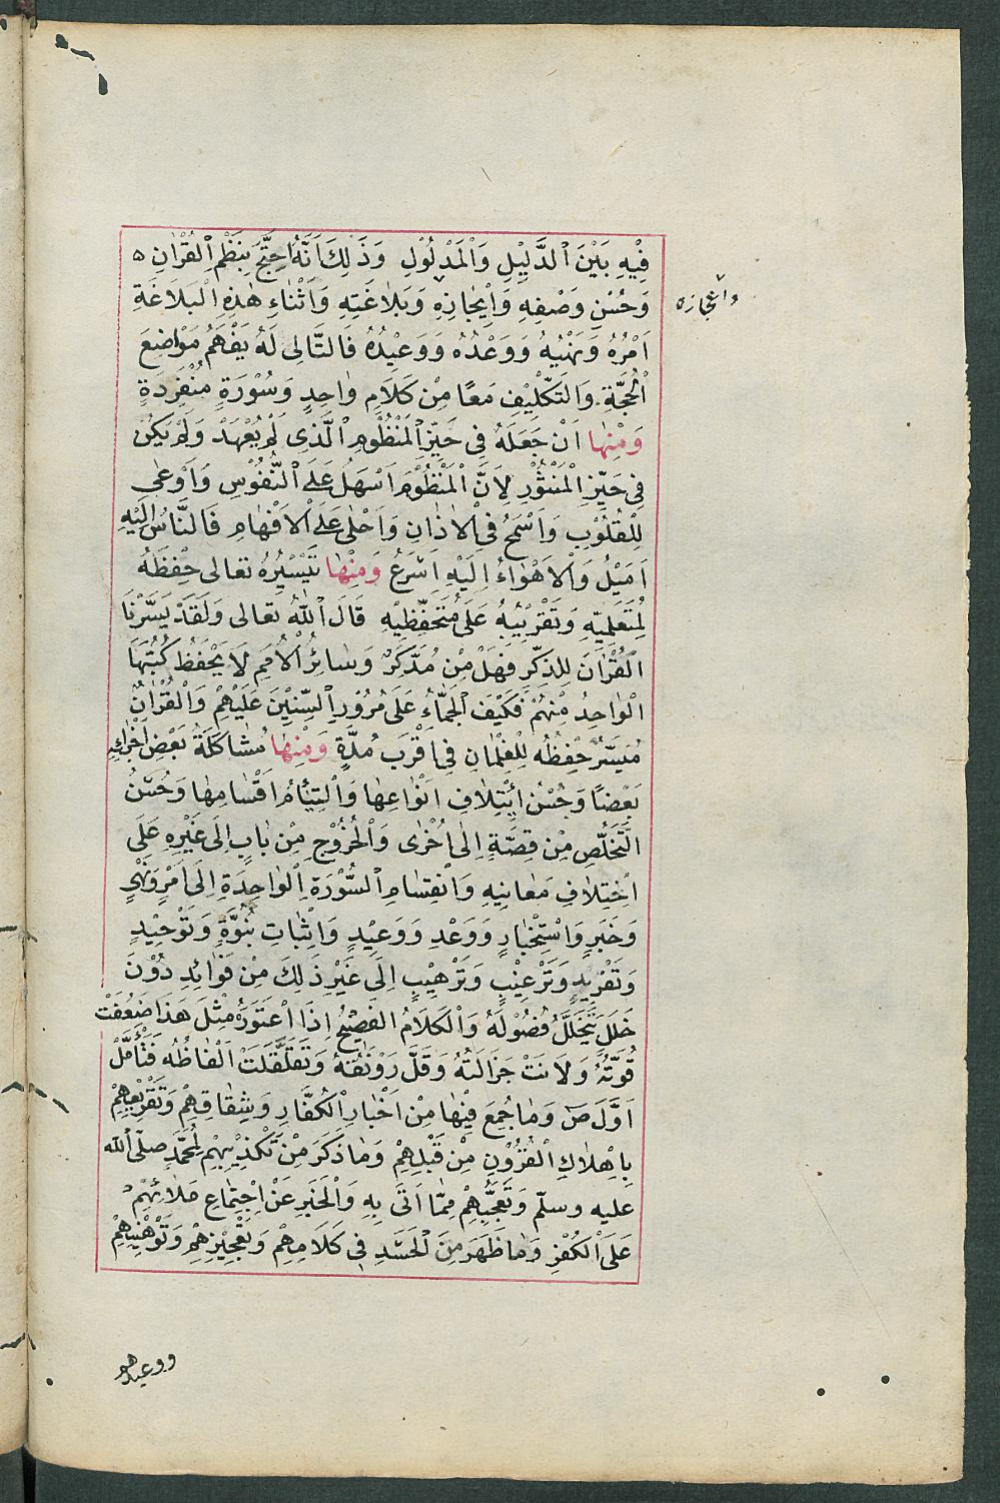 فِيْهِ بَيْنَ الدَّلِيْلِ وَالْمَدْلُوْلِ وَذَلِكَ اَنَّهُ احْتَجَّ بِنَظْمِ الْقُرْاٰنِ ه
وَحُسْنِ وَصْفِهِ وَاِيْجَازِهِ وَبَلَاغَتِهِ وَاَثْنَاءِ هٰذِهِ الْبَلَاغَةِ
واعجازه
اَمْرُهُ وَنَهْيُهُ وَوَعْدُهُ وَوَعِيْدُهُ فَالتَّالِى لَهُ يَفْهَمُ مَوَاضِعَ
الْحُجَّةِ وَالتَّكْلِيْفِ مَعًا مِنْ كَلَامٍ وٰاحِدٍ وَسُوْرَةٍ مُنْفَرِدَةٍ
وَمِنْهٰا اَنْ جَعَلَهُ فِى حَيِّزِ الْمَنْظُوْمِ الَّذِى لَمْ يُعْهَدْ وَلَمْ يَكُنْ
فِى حَيِّزِ الْمَنْثُوْرِ لِاَنَّ الْمَنْظُوْمَ اَسْهَلُ عَلَى النُّفُوْسِ وَاَوْعٰى
لِلْقُلُوْبِ وَاَسْمَحُ فِى الْاٰذٰانِ وَاَحْلٰى عَلَى الْاَفْهَامِ فَالنَّاسُ اِلَيْهِ
اَمْيَلُ وَالْاَهْوَاءُ اِلَيْهِ اَسْرَعُ وَمِنْهٰا تَيْسِيْرُهُ تعالى حِفْظَهُ
لِمُتَعَلِّمِيْهِ وَتَقْرِيْبُهُ عَلَى مُتَحَفِّظِيْهِ قَالَ اللّٰهُ تعالى وَلَقَدْ يَسَّرْنَا
الْقُرْاٰنَ لِلذِّكْرِ فَهَلْ مِنْ مُدَّكِرْ وَسٰائِرُ الْاُمَمِ لَا يَحْفَظُ كُتُبَهَا
الْوٰاحِدُ مِنْهُمْ فَكَيْفَ الْجَمَّاءُ عَلَى مُرُوْرِ السِّنِيْنَ عَلَيْهِمْ وَالْقُرْاٰنُ
مُيَسَّرٌ حِفْظُهُ لِلْغِلْمَانِ فِى اَقْرَبِ مُدَّةٍ وَمِنْهَا مُشٰاكَلَةُ بَعْضِ اَجْزَائِهِ
بَعْضًا وَحُسْنُ ائْتِلَافِ اَنْوَاعِهَا وَالْتِيَامُ اَقْسٰامِهٰا وَحُسْنُ
التَّخَلُّصِ مِنْ قِصَّةٍ اِلَى اُخْرٰى وَالْخُرُوْجِ مِنْ بَابٍ اِلَى غَيْرِهِ عَلَى
اخْتِلَافِ مَعٰانِيهِ وَانْقِسٰامِ السُّوْرَةِ الْوٰاحِدَةِ اِلَى اَمْرٍ وَنَهْىٍ
وَخَبَرٍ وَاسْتِخْبَارٍ وَوَعْدٍ وَوَعِيْدٍ وَاِثْبَاتِ نُبُوَّةٍ وَتَوْحِيْدٍ
وَتَفْرِيدٍ وَتَرْغِيْبٍ وَتَرْهِيْبٍ اِلَى غَيْرِ ذَلِكَ مِنْ فَوَائِدِ دُوْنَ
خَلَلٍ يَتَخَلَّلُ فُصُوْلَهُ وَالْكَلَامُ الْفَصِيْحُ اِذَا اعْتَوَرَهُ مِثْلُ هَذَا ضَعُفَتْ
قُوَّتُهُ وَلَانَتْ جَزَالَتُهُ وَقَلَّ رَوْنَقُهُ وَتَقَلْقَلَتْ اَلْفَاظُهُ فَتَأَمَّلْ
اَوَّلَ صٓ وَمَا جُمِعَ فِيْهَا مِنْ اَخْبَارِ الْكُفَّارِ وَشِقٰاقِهِمْ وَتَقْرِيْعِهِمْ
بِاِهْلَاكِ الْقُرُوْنِ مِنْ قَبْلِهِمْ وَمٰا ذَكَرَ مِنْ تَكْذِيْبِهِمْ لِمُحَمَّدٍ صلّى اللّٰه
عليه وسلّم وَتَعَجُّبِهِمْ مِمَّا اَتَى بِهِ وَالْخَبَرِ عَنْ اِجْتِمَاعِ مَلَائِهِمْ
عَلَى الْكُفْرِ وَمٰا ظَهَرَ مِنَ الْحَسَدِ فِى كَلَامِهِمْ وَتَعْجِيْزِهِمْ وَتَوْهِيْنِهِمْ
ووعيدهم